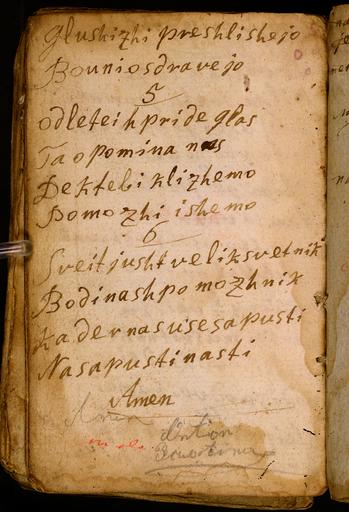 Glushizhi preshlishejo
Bouniosdravejo
5
odleteih pride glas
Ta opomina nas
De k tebi klizhemo
Pomozhi ishemo
6
Sveit jusht velik svetnik
Bodi nash pomozhnik
kader nas vse sapusti
Nasapusti nas ti
Amen
Amen
Anton